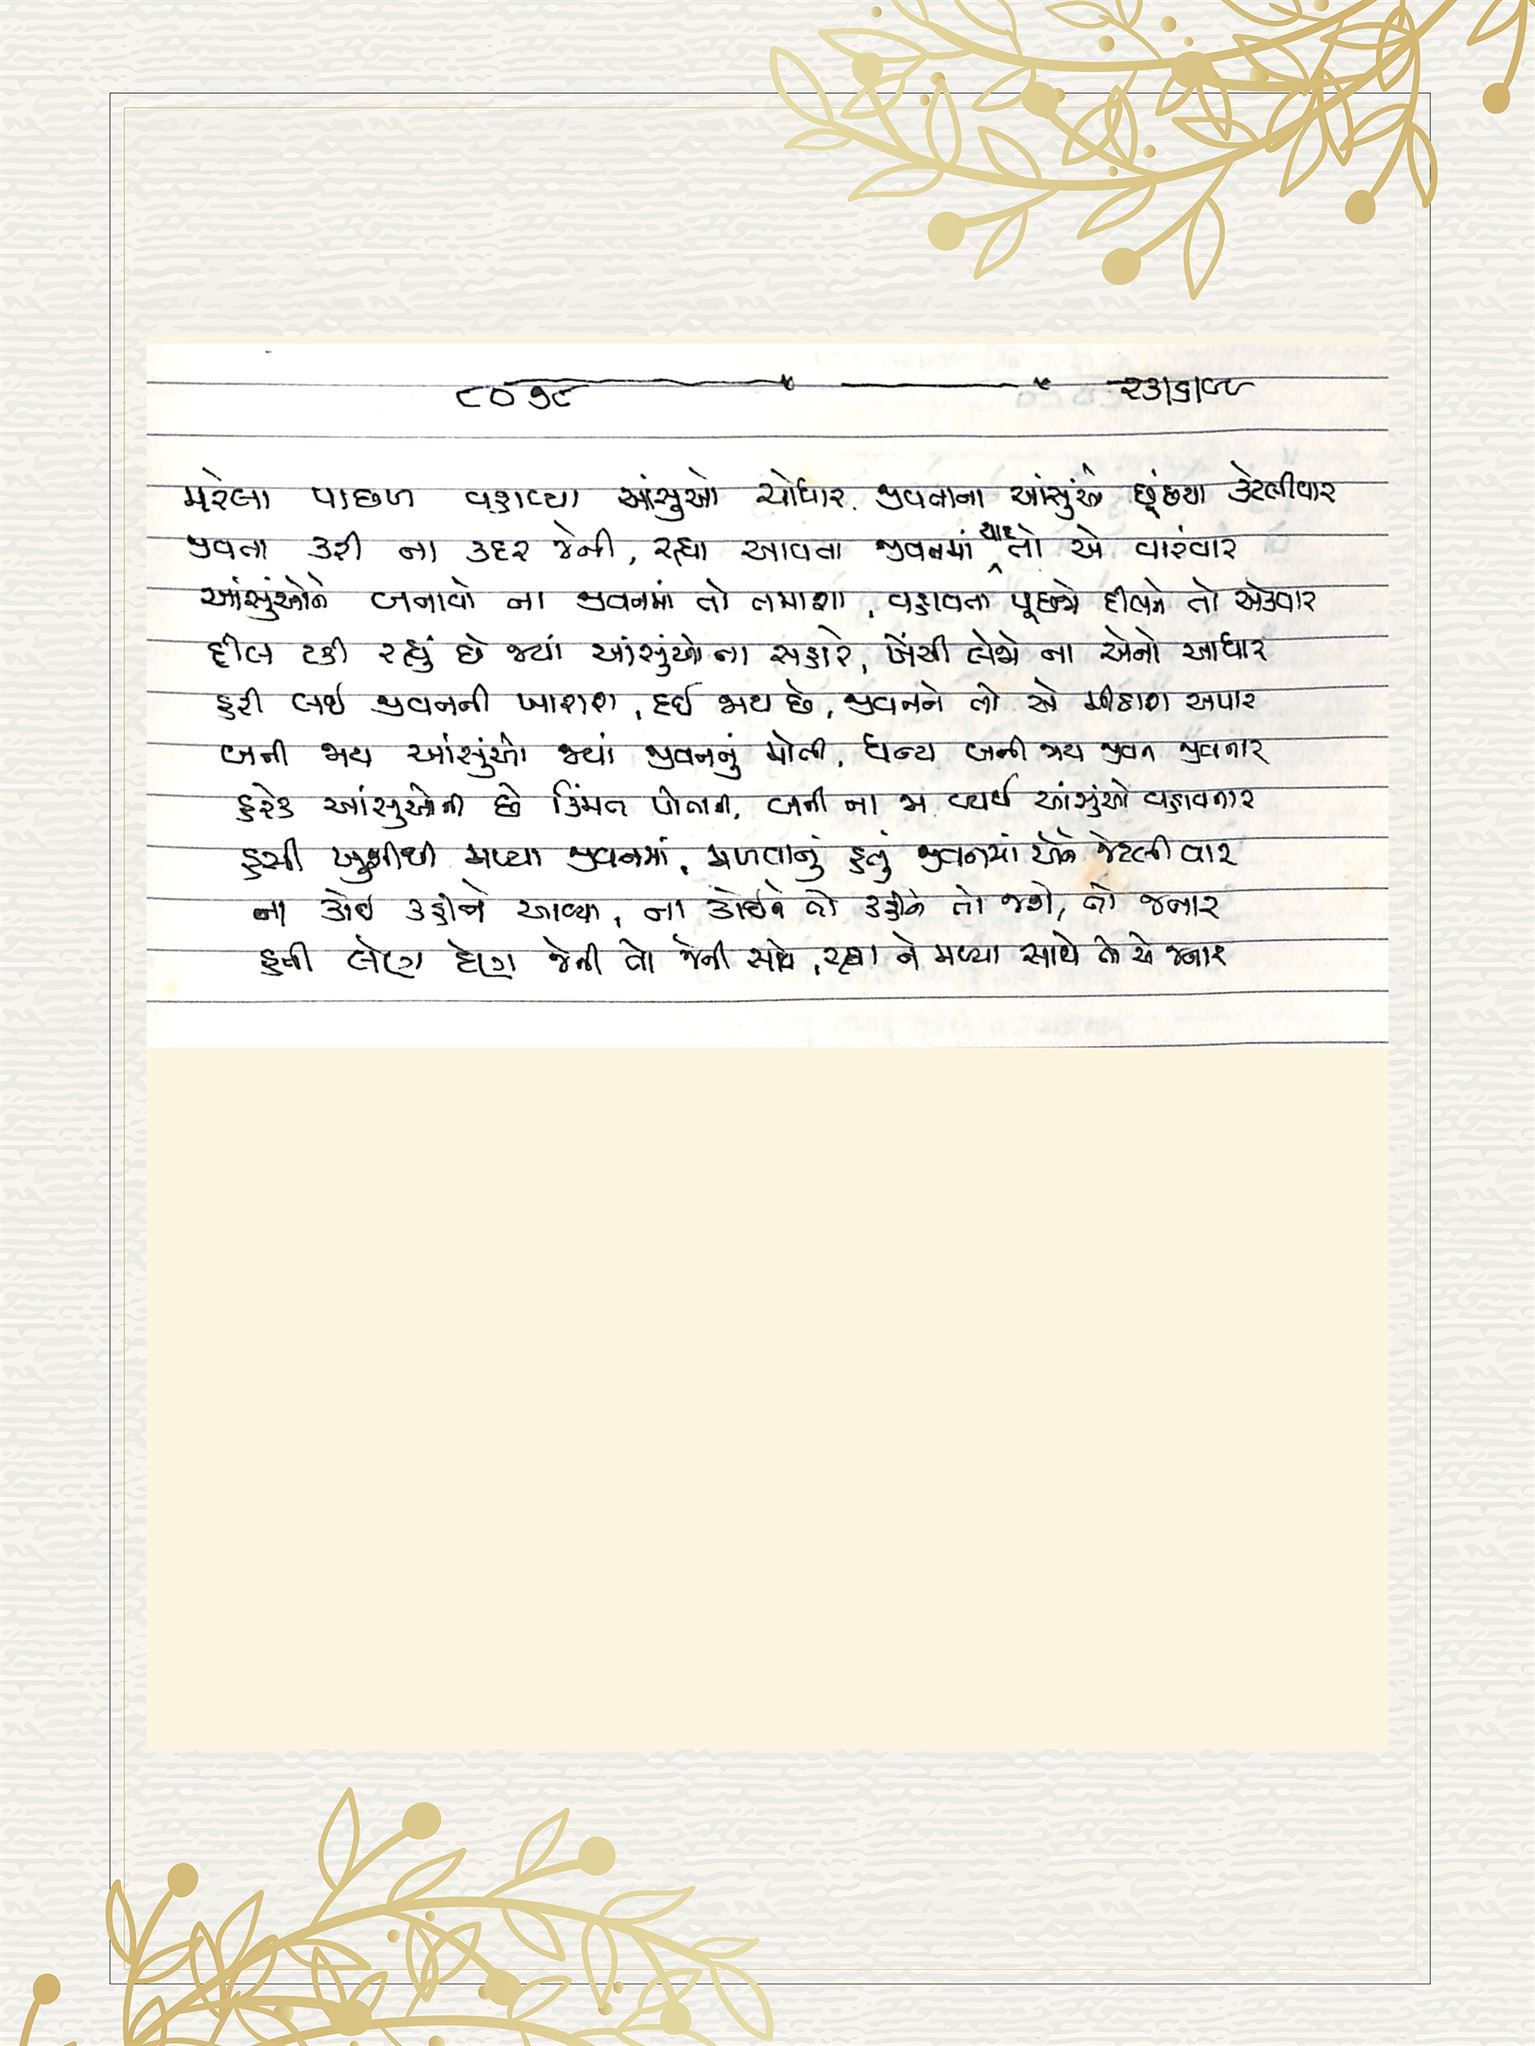 ૮૦૭૯ ૨૩/૬/૯૯
મરેલા પાછળ વહાવ્યા આંસુઓ ચોધાર. જીવતાના આંસુંઓ લૂંછયા કેટલીવાર
જીવતા કરી ના કદર જેની, રહ્યા આવતા જીવનમાં યાદ તો એ વારંવાર
આંસુંઓને બનાવો ના જીવનમાં તો તમાશા, વહાવતા પૂછજો દીલને તો એકવાર
દીલ ટકી રહ્યું છે જ્યાં આંસુંઓના સહારે, ખેંચી લેજો ના એનો આધાર
હરી લઈ જીવનની ખારાશ, દઈ જાય છે, જીવનને તો એ મીઠાશ અપાર
બની જાય આંસુંઓ જ્યાં જીવનનું મોતી, ધન્ય બની જાય જીવન જીવનાર
હરેક આંસુઓની છે કિંમત પોતાની, બની ના જા વ્યર્થ આંસુંઓ વહાવનાર
હસી ખુશીથી મળ્યા જીવનમાં, મળવાનું હતું જીવનમાં એને જેટલી વાર
ના કોઈ કહીને આવ્યા, ના કોઈને તો કહીને તો જશે, તો જનાર
હતી લેણા દેણા જેની તો જેની સાથે, રહ્યા ને મળ્યા સાથે તો એ જનાર